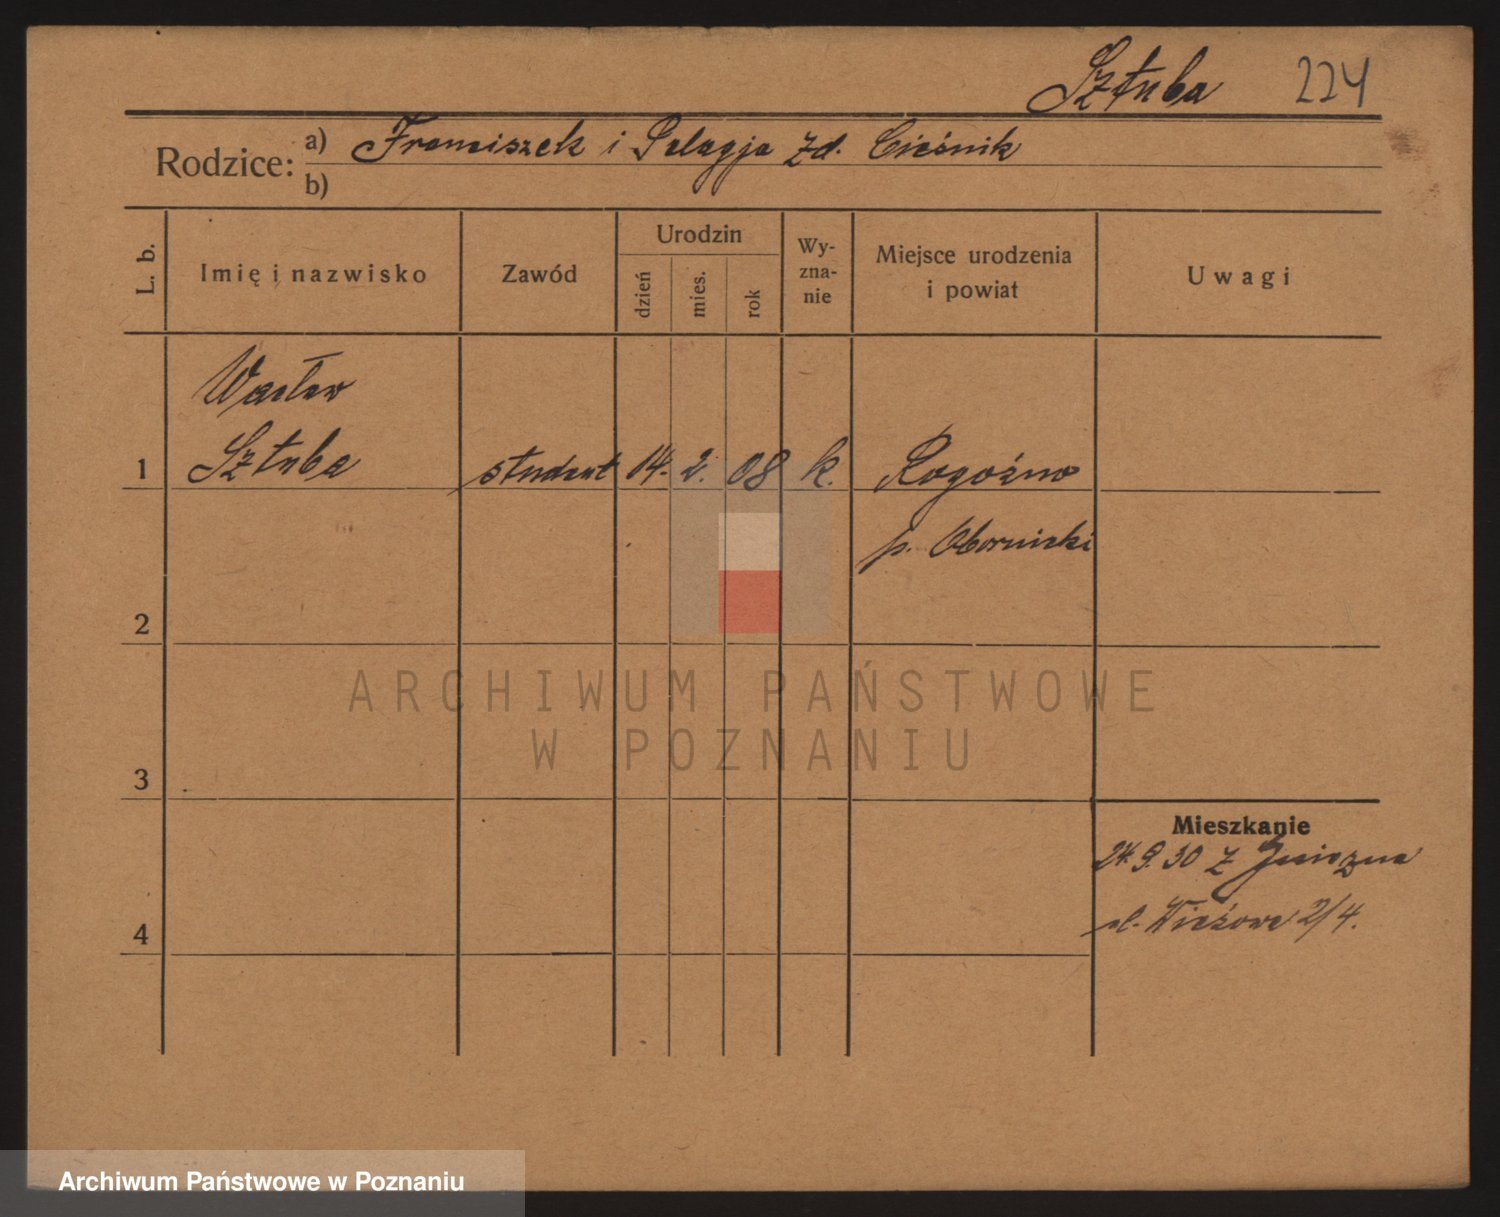 Sztuba 224
Rodzice: a) Franciszek i Pelagja zd. Cieśnik
b)
L. b. Imię i nazwisko Zawód Urodzin dzień mies. rok Wy-zna-nie Miejsce urodzenia i powiat Uwagi
Wacław
1 Sztuba student 14. 2. 08 k. Rogoźno
p. Obornicki
2
ARCHIWUM PAŃSTWOWE
W POZNANIU
3
Mieszkanie
24.9.30 z Gniezna
4 ul. Wieżowa 2/4.
Archiwum Państwowe w Poznaniu